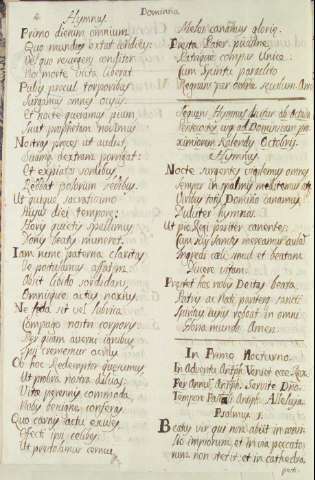 Dominica
Hymnus
Primo dierum omnium
Quo mundus extat conditus:
Vel quo resurgens conditor
Nos morte victa liberat
Pulsis procul torporibus
Surgamus omnes ocyus
Et nocte quæramus pium
Sicut prophetam novimus
Nostras preces ut audiat
Suamq dextram porrigat:
Et expiatos sordibus
Reddat polorum sedibus.
Ut quique sacratissimo
Huius diei tempore:
Horis quietis psallimus
Donis beatis muneret.
Iam nunc paterna claritas
Te postulamus affatim
Absit libido sordidans
Omnisque actus noxius.
Ne fœda sit vel lubrica
Compago nostri corporis
Per quam averni ignibus
Ipsi crememur acrius
Ob hoc Redemptor quæsumus
Ut probra nostra diluas:
Vitæ perennis commoda
Nobis benigne conferas
Quo carnis actu exules
Effecti ipsi cælibes
Ut præstolamur cernui
Melos canamus gloriæ.
Præsta Pater piissime
Patrique compar Unice
Cum Spiritu paraclito
Regnans per omne sæculum. Amen
Sequens Hymnus dicitur ab Octava
Pentecostes usq ad Dominicam pro
ximiorem Kalendis Octobris.
Hymnus
Nocte surgentes vigilemus omnes
Semper in psalmis meditemur atq
Viribus totis Domino canamus
Dulciter hymnos.
Ut pio Regi pariter canentes
Cum suis Sanctis mereamur aulam
Ingredi cæli simul et beatam
Ducere vitam.
Præstet hoc nobis Deitas beata
Patris ac Nati pariterq sancti
Spiritus cuius resonat in omni
Gloria mundo Amen.
In Primo Nocturno.
In Adventu Antiph Veniet ecce Rex.
Per Annum Antiph. Servite Dno
Tempore Pasch Antiph Alleluya
Psalmus 1.
Beatus vir qui non abiit in consi
lio impiorum, et in via peccato
rum non stetit, et in cathedra